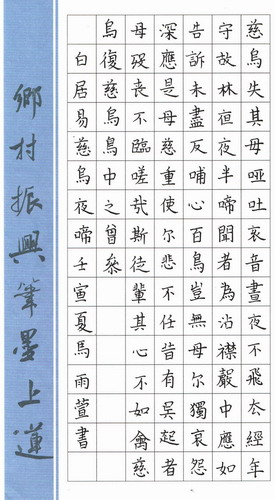 慈烏失其母哑吐哀音晝夜不飛厺經年
守故林亱夜半啼聞者為沾襟聲中應如
告訴未盡反哺心百鳥豈無母尔獨哀怨
深應是母慈重使尔悲不任昔有吳起者
母殁喪不臨嗟哉斯徒輩其心不如禽慈
烏復慈烏鳥中之曾參
白居易慈烏夜啼壬寅夏馬雨萱書
鄉村振興筆墨上蓮